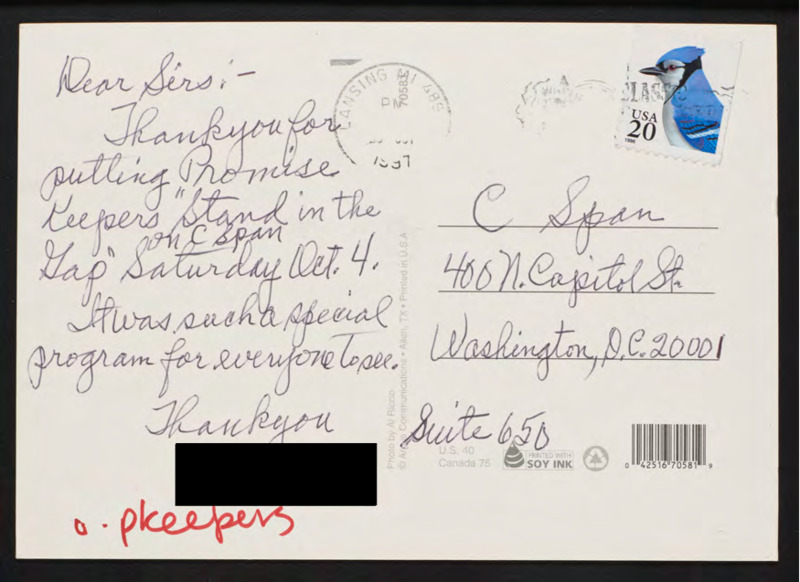 Dear Sirs:-
Thankyou for
putting Promise
Keepers "Stand in the
on C Span
Gap" Saturday Oct. 4.
It was such a special
program for everyone to see.
Thankyou
o. pkeepers
LANSING MI 489
PM
1997
70581
CLASS
USA
20
1996
C Span
400 N. Capitol St.
Washington, D.C. 20001
Suite 650
Photo by Al Riccio
Communications • TX • Printed in U.S.A
U.S. 40
Canada 75
PRINTED WITH
SOY INK
0 42516 70581 9